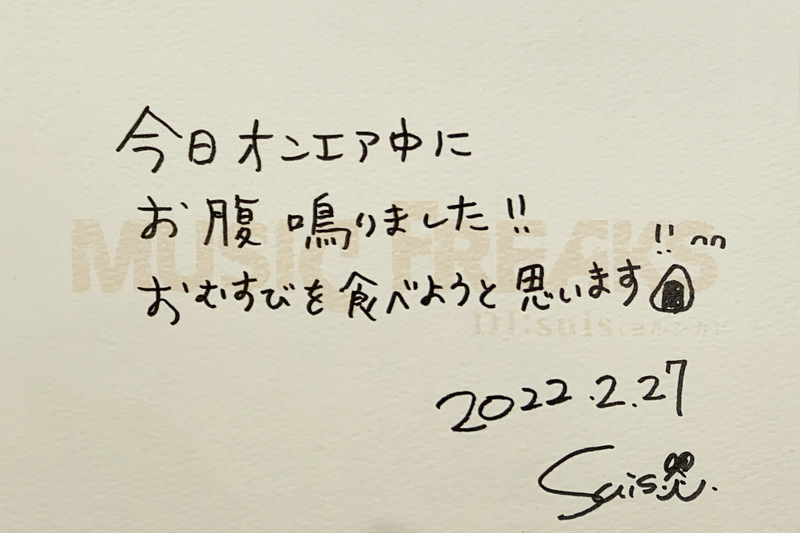 今日オンエア中に
お腹鳴りました!!
MUSIC FREAKS
おむすびを食べようと思います!!
DJ:suis(ヨルシカ)
2022.2.27
suis